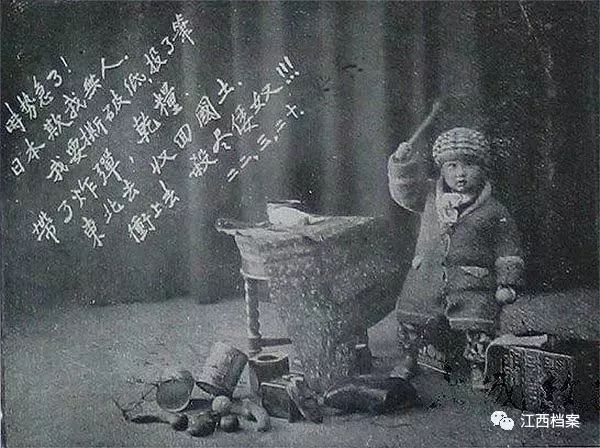 时勢急了！
日本欺我無人．
我要撕破纸投了筆
帶了炸彈，乾糧．
東北去 收回國土．
衝上去 殺尽倭奴!!!
二二,三,二十．
江西档案